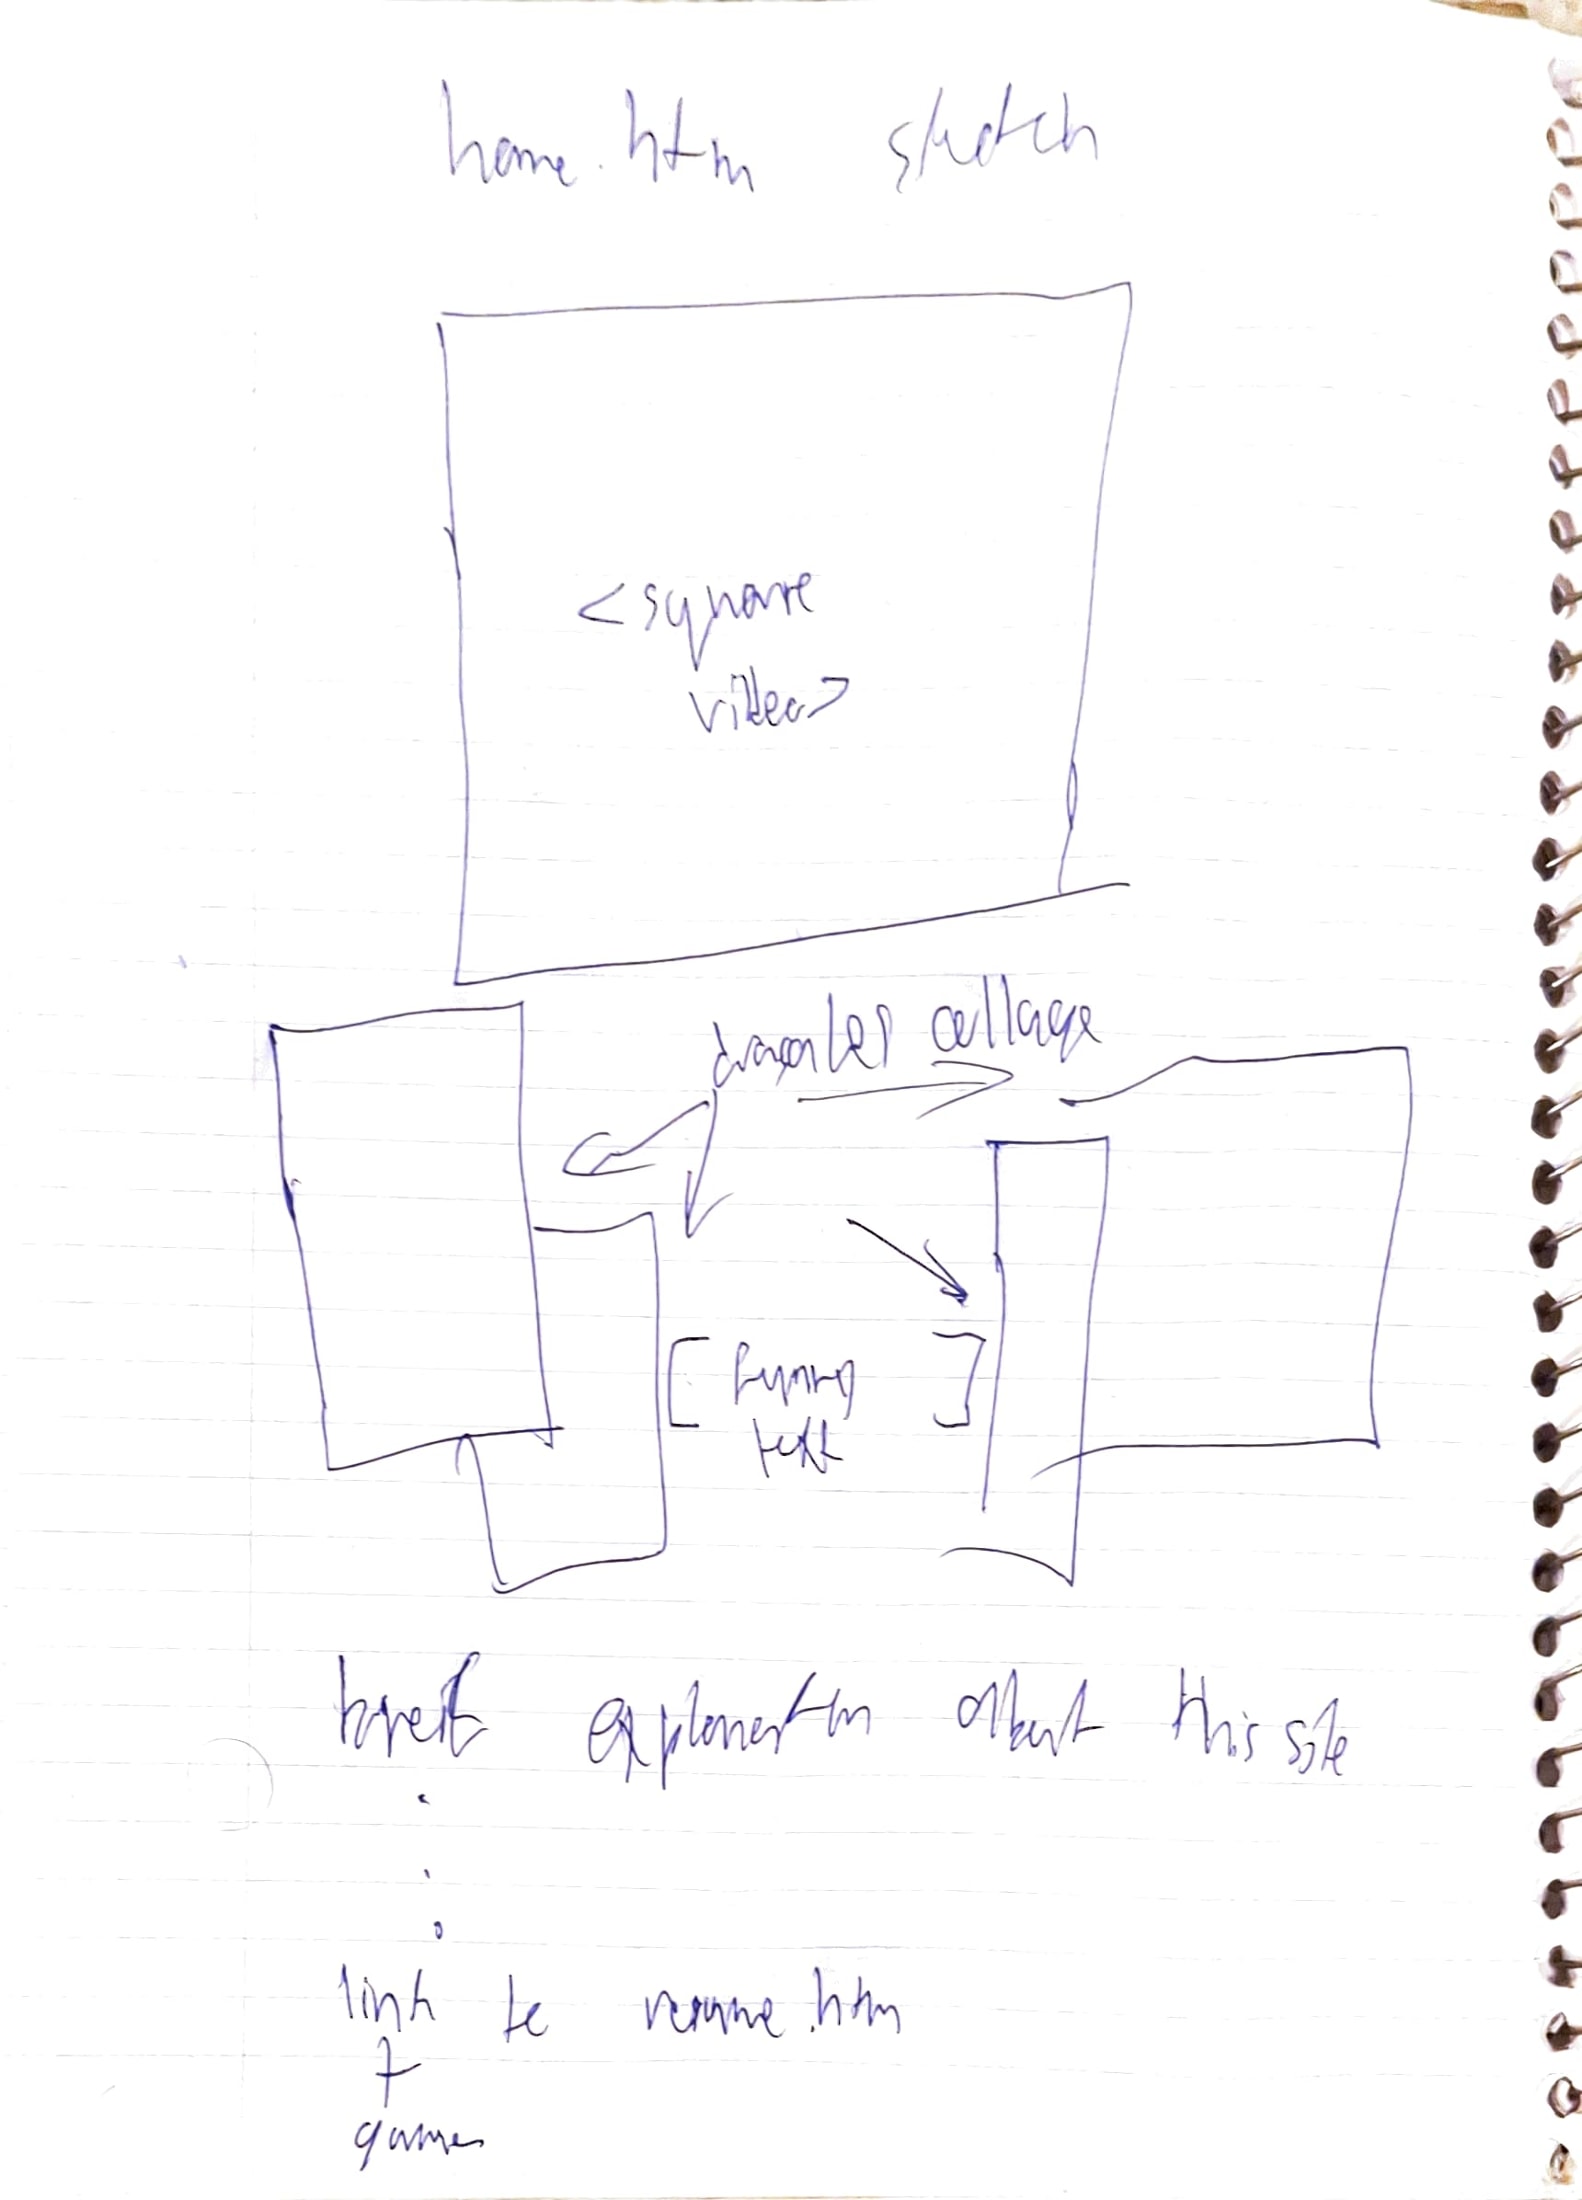 home.htm sketch
<square
video>
collage
[ funny ]
text
brief explanation about this site
link to resume.htm
+
games